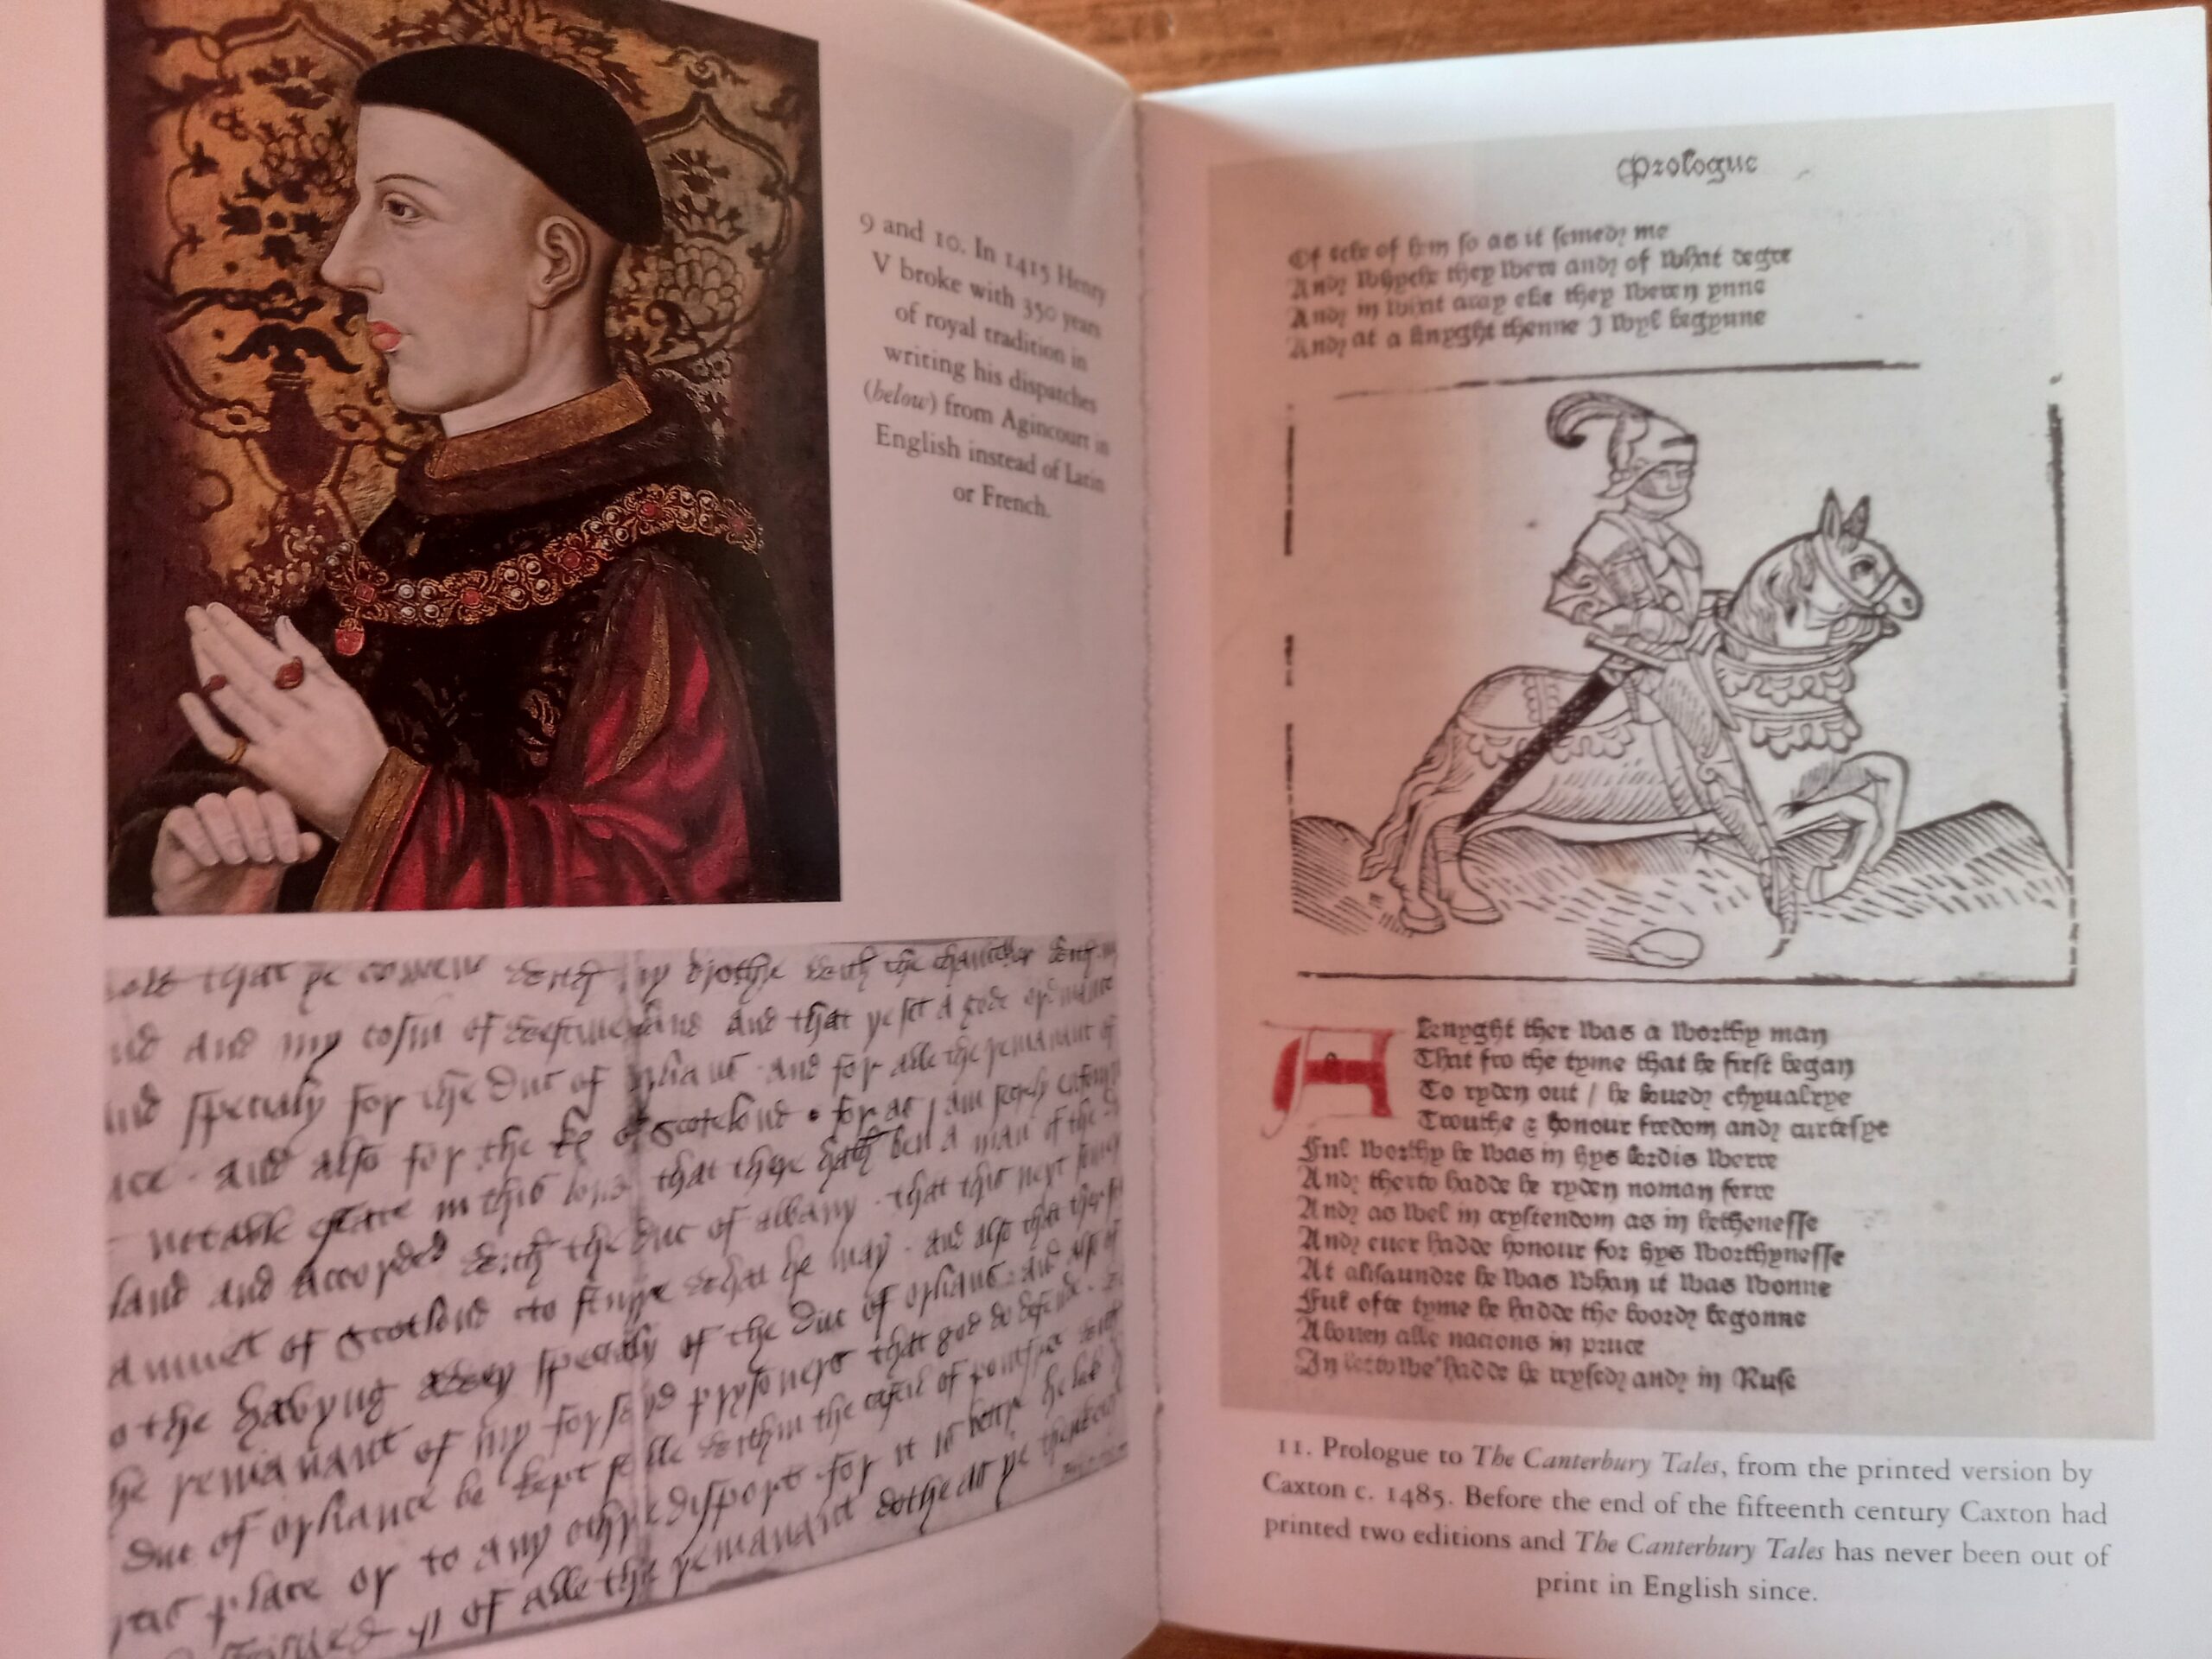 9 and 10. In 1415 Henry
V broke with 350 years
of royal tradition in
writing his dispatches
(below) from Agincourt in
English instead of Latin
or French.
that ye my brothe with the chanceller
and my cosin of and that ye set a gode
specialy for the Duc of orliance and for alle the remanant of
and also for the of Scotelond for as I am
notable estate in this lond that there hath ben a man of the
land and accorded with the Duc of albany that this next
of Scotlond to what he may and also that
the havyng specialy of the Duc of orliance and also of
remanant of my forsaid prysoners that god do defende
Duc of orliance be kept stille within the castil of
place or to any othre disport for it is bettre he lak
of alle the remanant dothe as ye
Prologue
Of eche of hem so as it semed me
And whyche they were and of what degre
And in what aray eke they weren ynne
And at a knyght thenne I wyl begynne
A knyght ther was a worthy man
That fro the tyme that he first began
To ryden out / he loued chyualrye
Trouthe & honour fredom and curtesye
Ful worthy he was in hys lordis werre
And therto hadde he ryden noman ferre
And as wel in crystendom as in hethenesse
And euer hadde honour for hys worthynesse
At alisaundre he was whan it was wonne
Ful ofte tyme he hadde the boord begonne
Abouen alle nacions in pruce
In hadde he reysed and in Ruse
11. Prologue to The Canterbury Tales, from the printed version by
Caxton c. 1485. Before the end of the fifteenth century Caxton had
printed two editions and The Canterbury Tales has never been out of
print in English since.